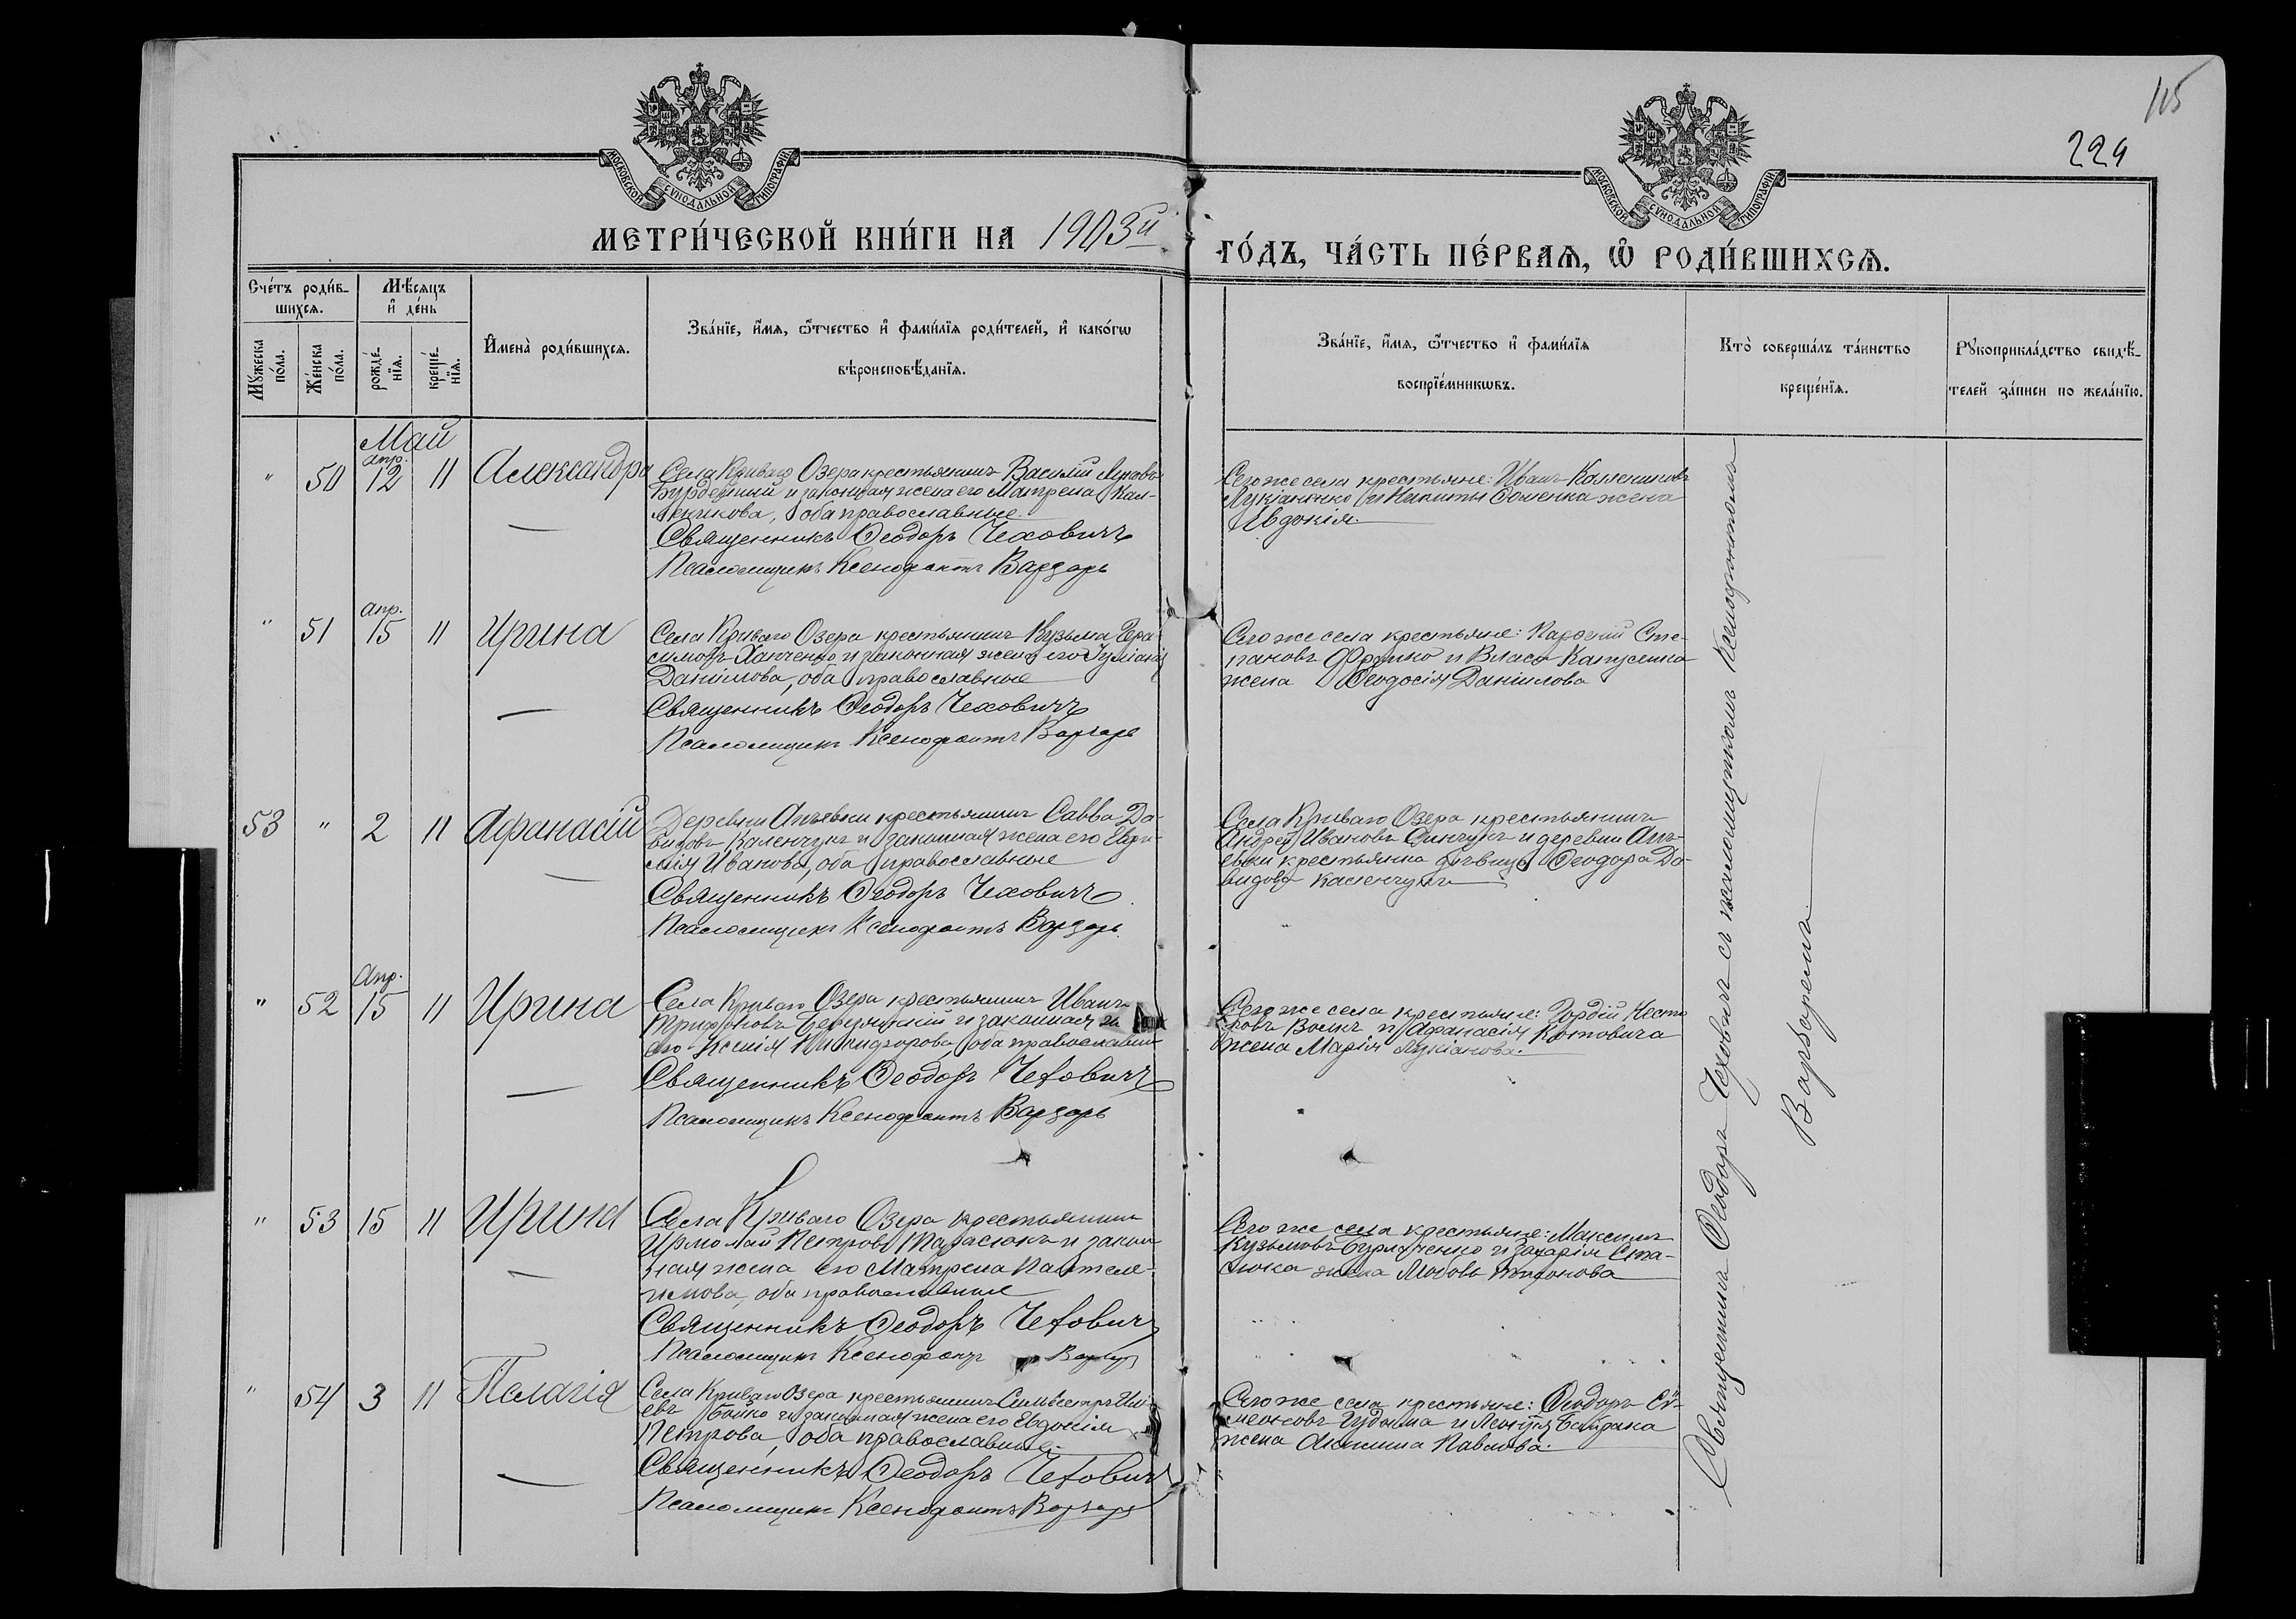 115
224
МОСКОВСКОЙ СУНОДАЛЬНОЙ ТИПОГРАФІИ
МОСКОВСКОЙ СУНОДАЛЬНОЙ ТИПОГРАФІИ
МЕТРИ́ЧЕСКОЙ КНИ́ГИ НА 1903й
ГО́ДЪ, ЧА́СТЬ ПЕ́РВАѦ, Ѽ РОДИ́ВШИХСѦ.
Сче́тъ роди́в-
шихсѧ.
Мѣ́сяцъ
и҆ де́нь
Мꙋ́жеска
по́ла.
Же́нска
по́ла.
рожде́-
нїѧ.
креще́-
нїѧ.
И҆мена̀ роди́вшихсѧ.
Зва́нїе, и҆́мѧ, ѻ҆́тчество и҆ фами́лїѧ роди́телей, и҆ како́гѡ
вѣроисповѣ́данїѧ.
Зва́нїе, и҆́мѧ, ѻ҆́тчество и҆ фами́лїѧ
воспрїе́мникѡвъ.
Кто̀ соверша́лъ та́инство
креще́нїѧ.
Рꙋкоприкла́дство свидѣ́-
телей за́писи по жела́нїю.
Май
" 50 апр. 12 11 Александра
Села Криваго Озера крестьянинъ Василій Луковъ
и законная жена его Матрена Кал-
леникова, оба православные.
Священникъ Ѳеодоръ Чеховичъ
Псаломщикъ Ксенофонтъ Варзарь
Сего же села крестьяне: Иванъ Каллениковъ
Лукіаненко и Никиты жена
Евдокія.
" 51 апр. 15 11 Ирина
Села Криваго Озера крестьянинъ Кузьма Гера-
симовъ Ханченко и законная жена его Іуліанія
Даніилова, оба православные
Священникъ Ѳеодоръ Чеховичъ
Псаломщикъ Ксенофонтъ Варзарь
Сего же села крестьяне: Сте-
пановъ и Власа
жена Ѳеодосія Даніилова
53 " 2 11 Афанасій
Деревни крестьянинъ Савва Да-
видовъ Каленчукъ и законная жена его Евфи-
мія Иванова, оба православные
Священникъ Ѳеодоръ Чеховичъ
Псаломщикъ Ксенофонтъ Варзарь
Села Криваго Озера крестьянинъ
Андрей Ивановъ и деревни
крестьянка дѣвица Ѳеодора Да-
видова Каленчукъ
" 52 Апр. 15 11 Ирина
Села Криваго Озера крестьянинъ Иванъ
Трифоновъ и законная
его Ксенія Никифорова, оба православные
Священникъ Ѳеодоръ Чеховичъ
Псаломщикъ Ксенофонтъ Варзарь
Сего же села крестьяне: Гордій Несто-
ровъ и Афанасія Котовича
жена Марія Лукіанова.
" 53 15 11 Ирина
Села Криваго Озера крестьянинъ
Ирмолай Петровъ Тарасюкъ и закон-
ная жена его Матрена Пантеле-
имова, оба православные
Священникъ Ѳеодоръ Чеховичъ
Псаломщикъ Ксенофонтъ Варзарь
Сего же села крестьяне: Максимъ
Кузьмовъ Бурлаченко и Захарія Ста-
сюка жена Любовь
" 54 3 11 Пелагія
Села Криваго Озера крестьянинъ Сильвестръ
Бойко и законная жена его Евдокія
Петрова, оба православные.
Священникъ Ѳеодоръ Чеховичъ
Псаломщикъ Ксенофонтъ Варзарь
Сего же села крестьяне: Ѳеодоръ Си-
меоновъ Гудыма и Леонтія Байрака
жена Акилина Павлова.
Священникъ Ѳеодоръ Чеховичъ съ псаломщикомъ Ксенофонтомъ
Варзаремъ